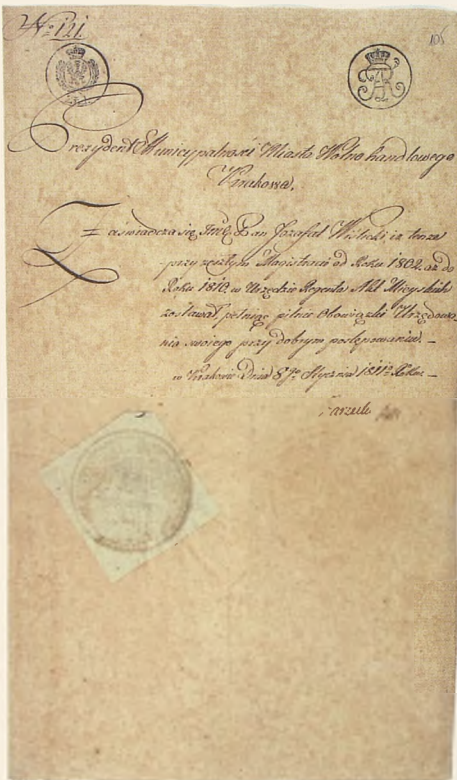 No 121.
105
Prezydent Municypalności Miasta Wolno handlowego
Krakowa.
Zaświadcza się, Pan Jozafat Wislicki iż tenże
przy zeszłym Magistracie od Roku 1802. aż do
Roku 1810. w Urzędzie Regenta Akt Mieyskich
zostawał, pełniąc pilnie Obowiązki Urzędowa-
nia swoiego przy dobrym postępowaniu. –
w Krakowie Dnia 8go Stycznia 1811o Roku –